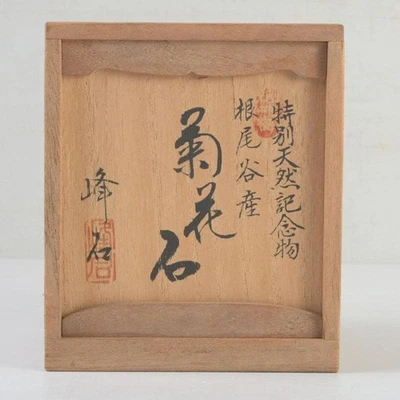 特別天然記念物
根尾谷産
菊花石
峰石